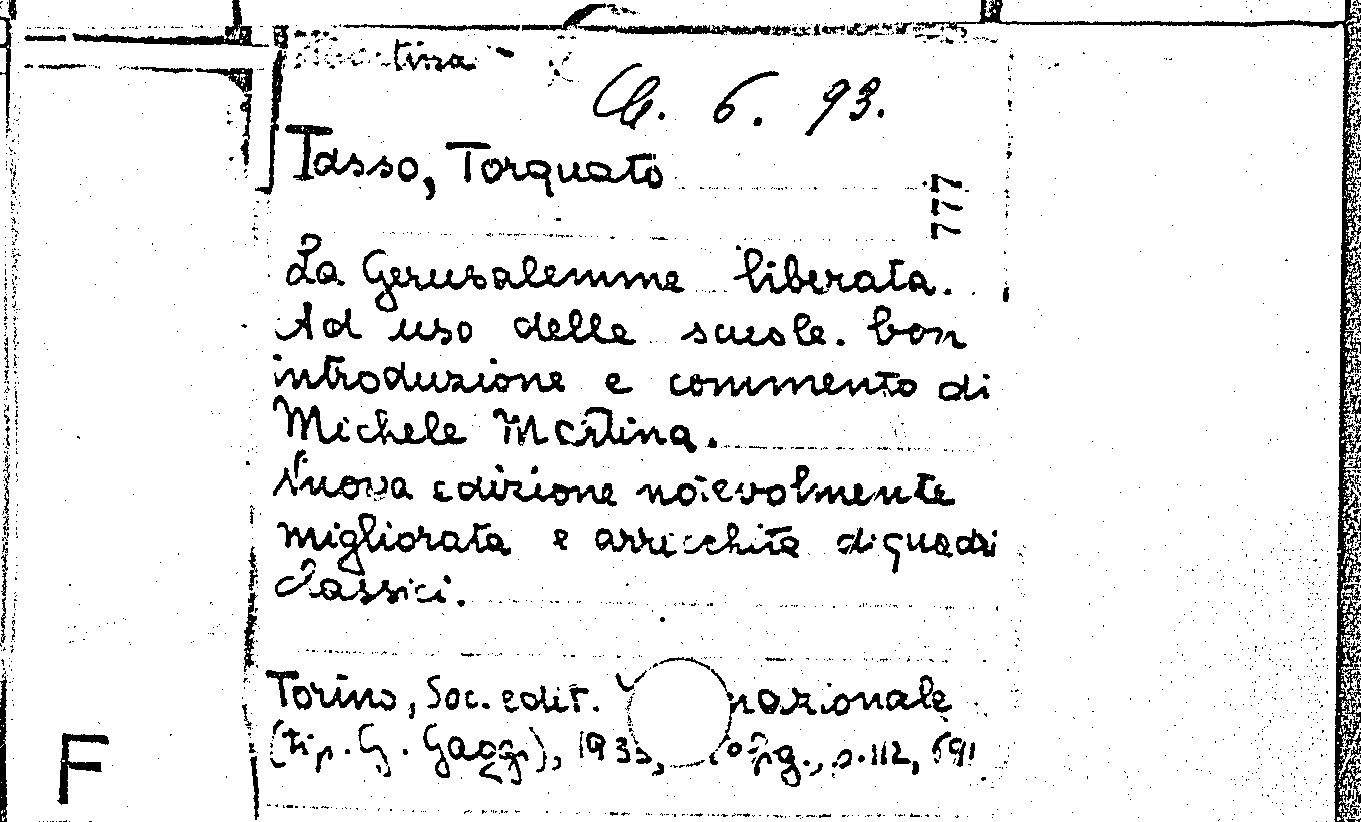 Martina -
Cb. 6. 93.
Tasso, Torquato
777
La Gerusalemme liberata.
Ad uso delle scuole. Con
introduzione e commento di
Michele Martina.
Nuova edizione notevolmente
migliorata e arricchita di quadri
classici.
Torino, Soc. edit. nazionale
(tip. G. Gaggi), 193 fig., p. 112, 691
F